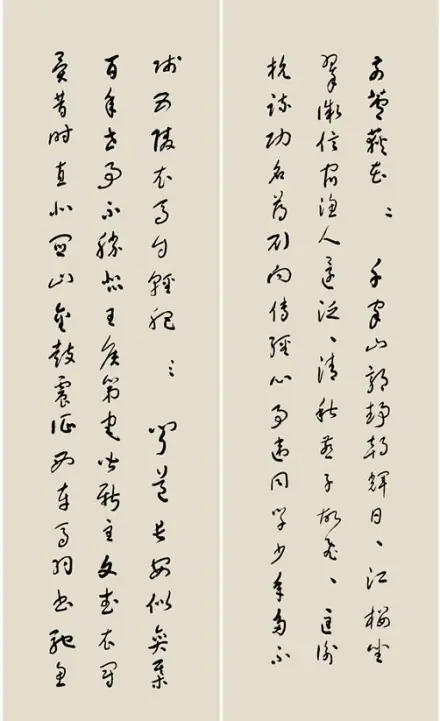 前蘆荻花 二 千家山郭靜朝暉日、江樓坐
翠微信宿漁人還泛、清秋燕子故飛、匡衡
抗疏功名薄劉向傳經心事違同學少年多不
賤五陵衣馬自輕肥 三 聞道長安似弈棋
百年世事不勝悲王侯第宅皆新主文武衣冠
異昔時直北關山金鼓震征西車馬羽書馳魚